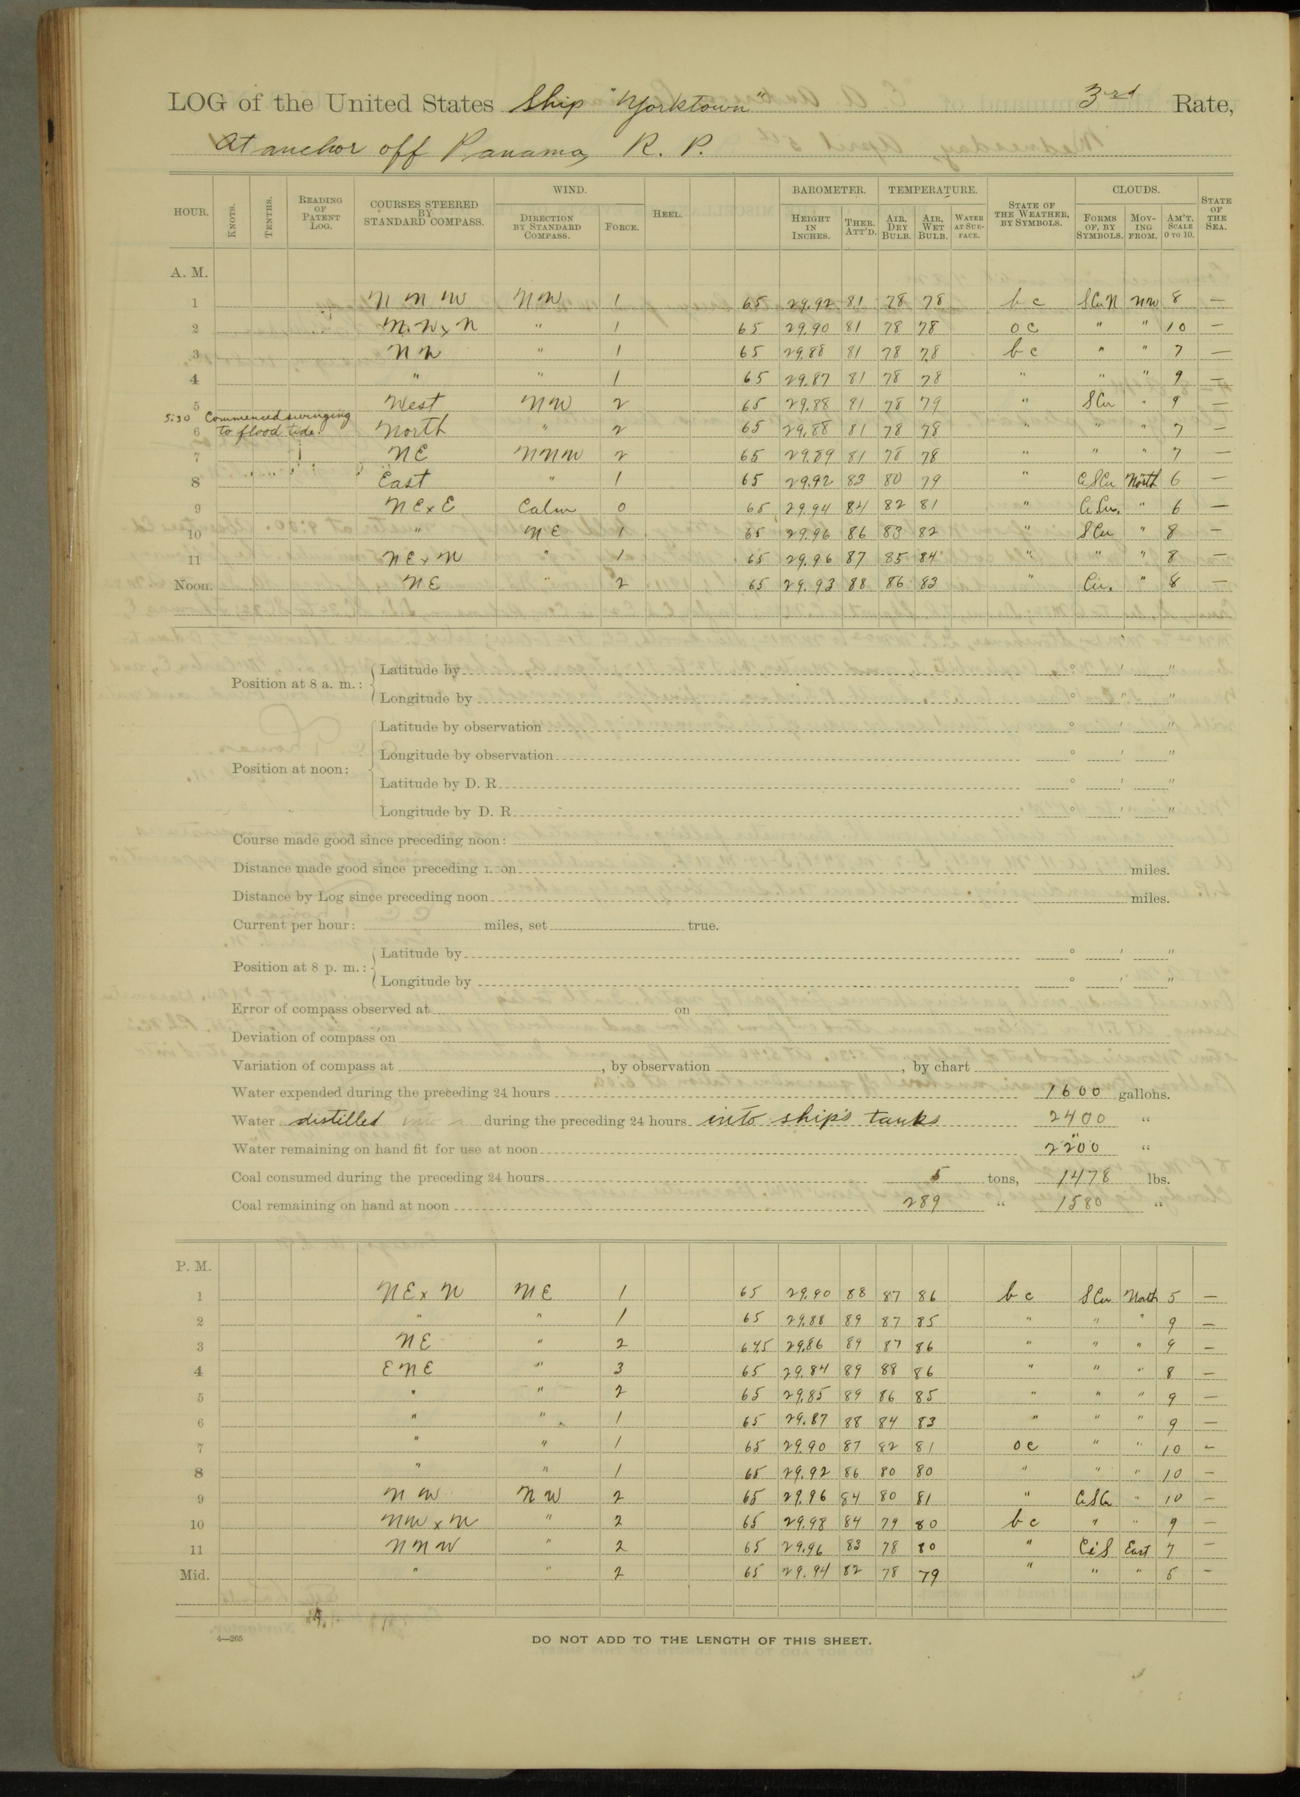 LOG of the United States Ship "Yorktown" 3rd Rate,
At anchor off Panama, R. P.
HOUR. KNOTS. TENTHS. READING OF PATENT LOG. COURSES STEERED BY STANDARD COMPASS. WIND. DIRECTION BY STANDARD COMPASS. FORCE. HEEL. BAROMETER. HEIGHT IN INCHES. THER. ATT'D. TEMPERATURE. AIR, DRY BULB. AIR, WET BULB. WATER AT SURFACE. STATE OF THE WEATHER, BY SYMBOLS. CLOUDS. FORMS OF, BY SYMBOLS. MOVING FROM. AM'T. SCALE 0 TO 10. STATE OF THE SEA.
A. M.
1 N N W NW 1 65 29.92 81 78 78 b c S Cu N NW 8 —
2 N.W x N " 1 65 29.90 81 78 78 o c " " 10 —
3 N W " 1 65 29.88 81 78 78 b c " " 7 —
4 " " 1 65 29.87 81 78 78 " " " 9 —
5 West NW 2 65 29.88 81 78 79 " S Cu " 9 —
5:30 Commenced swinging
to flood tide.
6 North " 2 65 29.88 81 78 78 " " " 7 —
7 NE NNW 2 65 29.89 81 78 78 " " " 7 —
8 East " 1 65 29.92 83 80 79 " C S Cu North 6 —
9 NE x E Calm 0 65 29.94 84 82 81 " Ci Cu. " 6 —
10 " NE 1 65 29.96 86 83 82 " S Cu " 8 —
11 NE x N " 1 65 29.96 87 85 84 " " " 8 —
Noon. NE " 2 65 29.93 88 86 83 " Cu. " 8 —
Position at 8 a. m.: Latitude by ° ' "
Longitude by ° ' "
Position at noon: Latitude by observation ° ' "
Longitude by observation ° ' "
Latitude by D. R. ° ' "
Longitude by D. R. ° ' "
Course made good since preceding noon:
Distance made good since preceding noon miles.
Distance by Log since preceding noon miles.
Current per hour: miles, set true.
Position at 8 p. m.: Latitude by ° ' "
Longitude by ° ' "
Error of compass observed at on
Deviation of compass on
Variation of compass at , by observation , by chart
Water expended during the preceding 24 hours 1600 gallons.
Water distilled during the preceding 24 hours into ship's tanks 2400 "
Water remaining on hand fit for use at noon 2200 "
Coal consumed during the preceding 24 hours 5 tons, 1478 lbs.
Coal remaining on hand at noon 289 " 1580 "
P. M.
1 NE x N NE 1 65 29.90 88 87 86 b c S Cu North 5 —
2 " " 1 65 29.88 89 87 85 " " " 9 —
3 NE " 2 64.5 29.86 89 87 86 " " " 9 —
4 ENE " 3 65 29.84 89 88 86 " " " 8 —
5 " " 2 65 29.85 89 86 85 " " " 9 —
6 " " 1 65 29.87 88 84 83 " " " 9 —
7 " " 1 65 29.90 87 82 81 o c " " 10 —
8 " " 1 65 29.92 86 80 80 " " " 10 —
9 N W N W 2 65 29.96 84 80 81 " C S Cu " 10 —
10 NW x N " 2 65 29.98 84 79 80 b c " " 9 —
11 N N W " 2 65 29.96 83 78 80 " Ci S East 7 —
Mid. " " 2 65 29.94 82 78 79 " " " 5 —
4—265
DO NOT ADD TO THE LENGTH OF THIS SHEET.